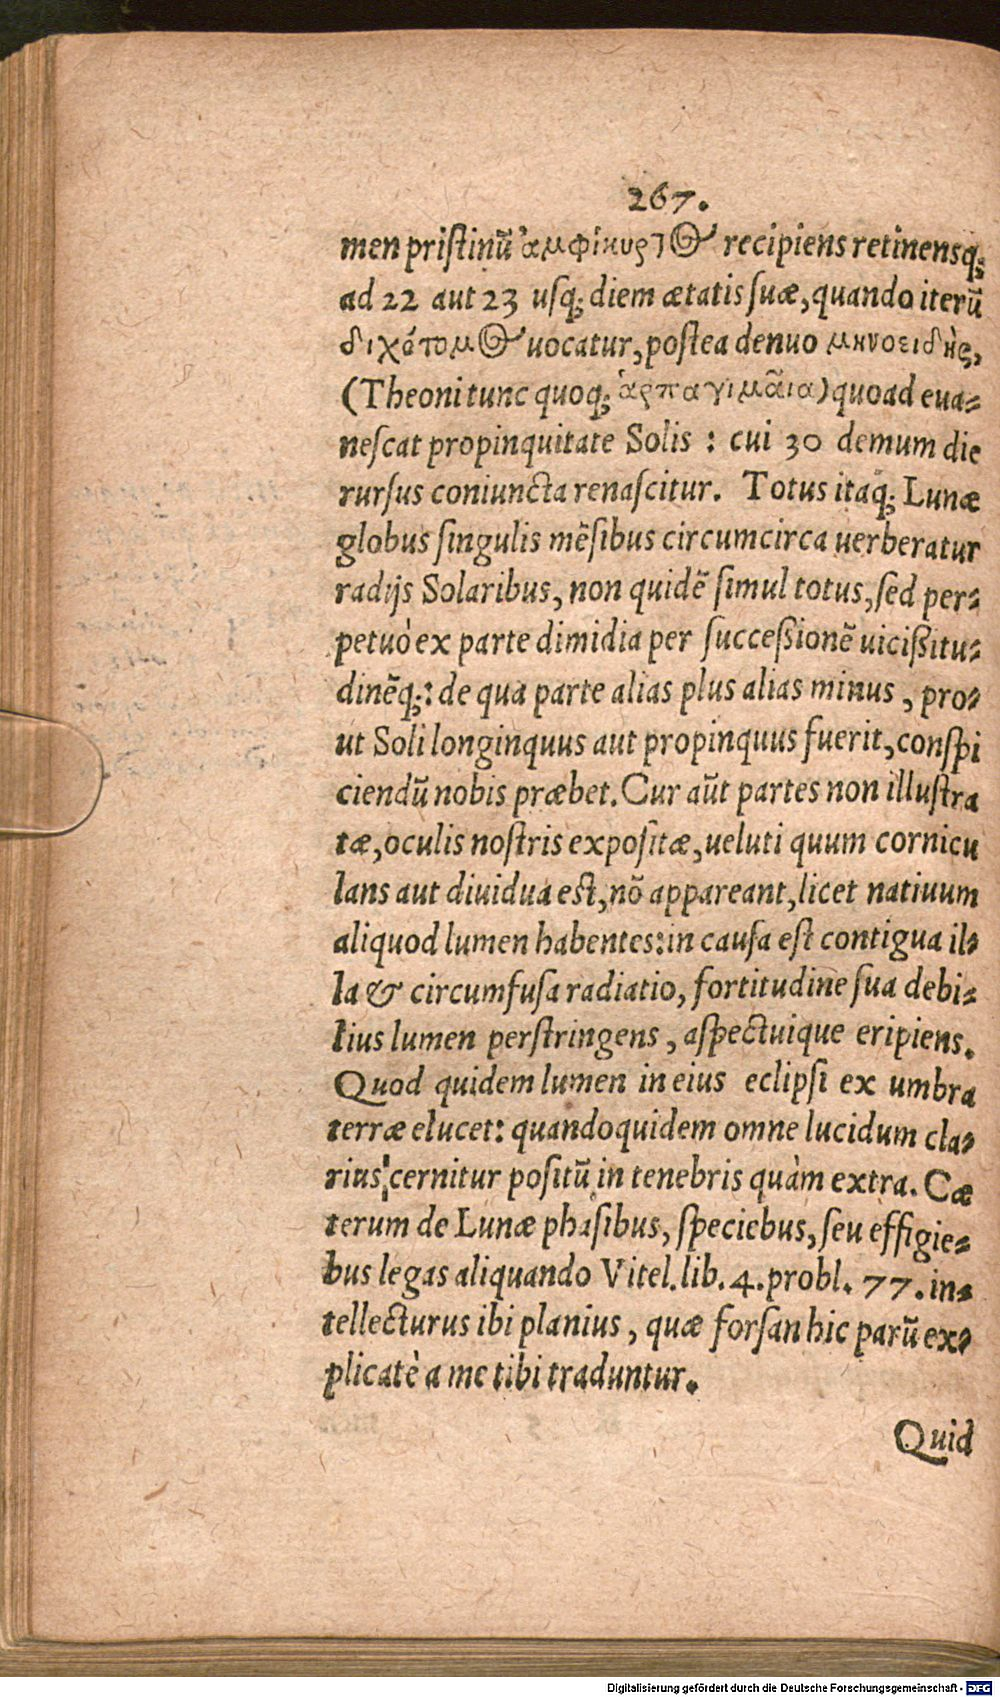 267.
men pristinũ ἀμφίκυρτος recipiens retinensq;
ad 22 aut 23 usq; diem ætatis suæ, quando iterũ
διχότομος uocatur, postea denuo μηνοειδὴς,
(Theoni tunc quoq; ) quoad eua-
nescat propinquitate Solis : cui 30 demum die
rursus coniuncta renascitur. Totus itaq; Lunæ
globus singulis mẽsibus circumcirca uerberatur
radijs Solaribus, non quidẽ simul totus, sed per-
petuò ex parte dimidia per successionẽ uicissitu-
dinẽq;: de qua parte alias plus alias minus, pro-
ut Soli longinquus aut propinquus fuerit, conspi
ciendũ nobis præbet. Cur aũt partes non illustra
tæ, oculis nostris expositæ, ueluti quum cornicu
lans aut diuidua est, nõ appareant, licet natiuum
aliquod lumen habentes: in causa est contigua il-
la & circumfusa radiatio, fortitudine sua debi-
lius lumen perstringens, aspectuique eripiens.
Quod quidem lumen in eius eclipsi ex umbra
terræ elucet: quandoquidem omne lucidum cla-
rius cernitur positũ in tenebris quàm extra. Cæ
terum de Lunæ phasibus, speciebus, seu effigie-
bus legas aliquando Vitel. lib. 4. probl. 77. in-
tellecturus ibi planius, quæ forsan hic parũ ex-
plicatè à me tibi traduntur.
Quid
Digitalisierung gefördert durch die Deutsche Forschungsgemeinschaft - DFG